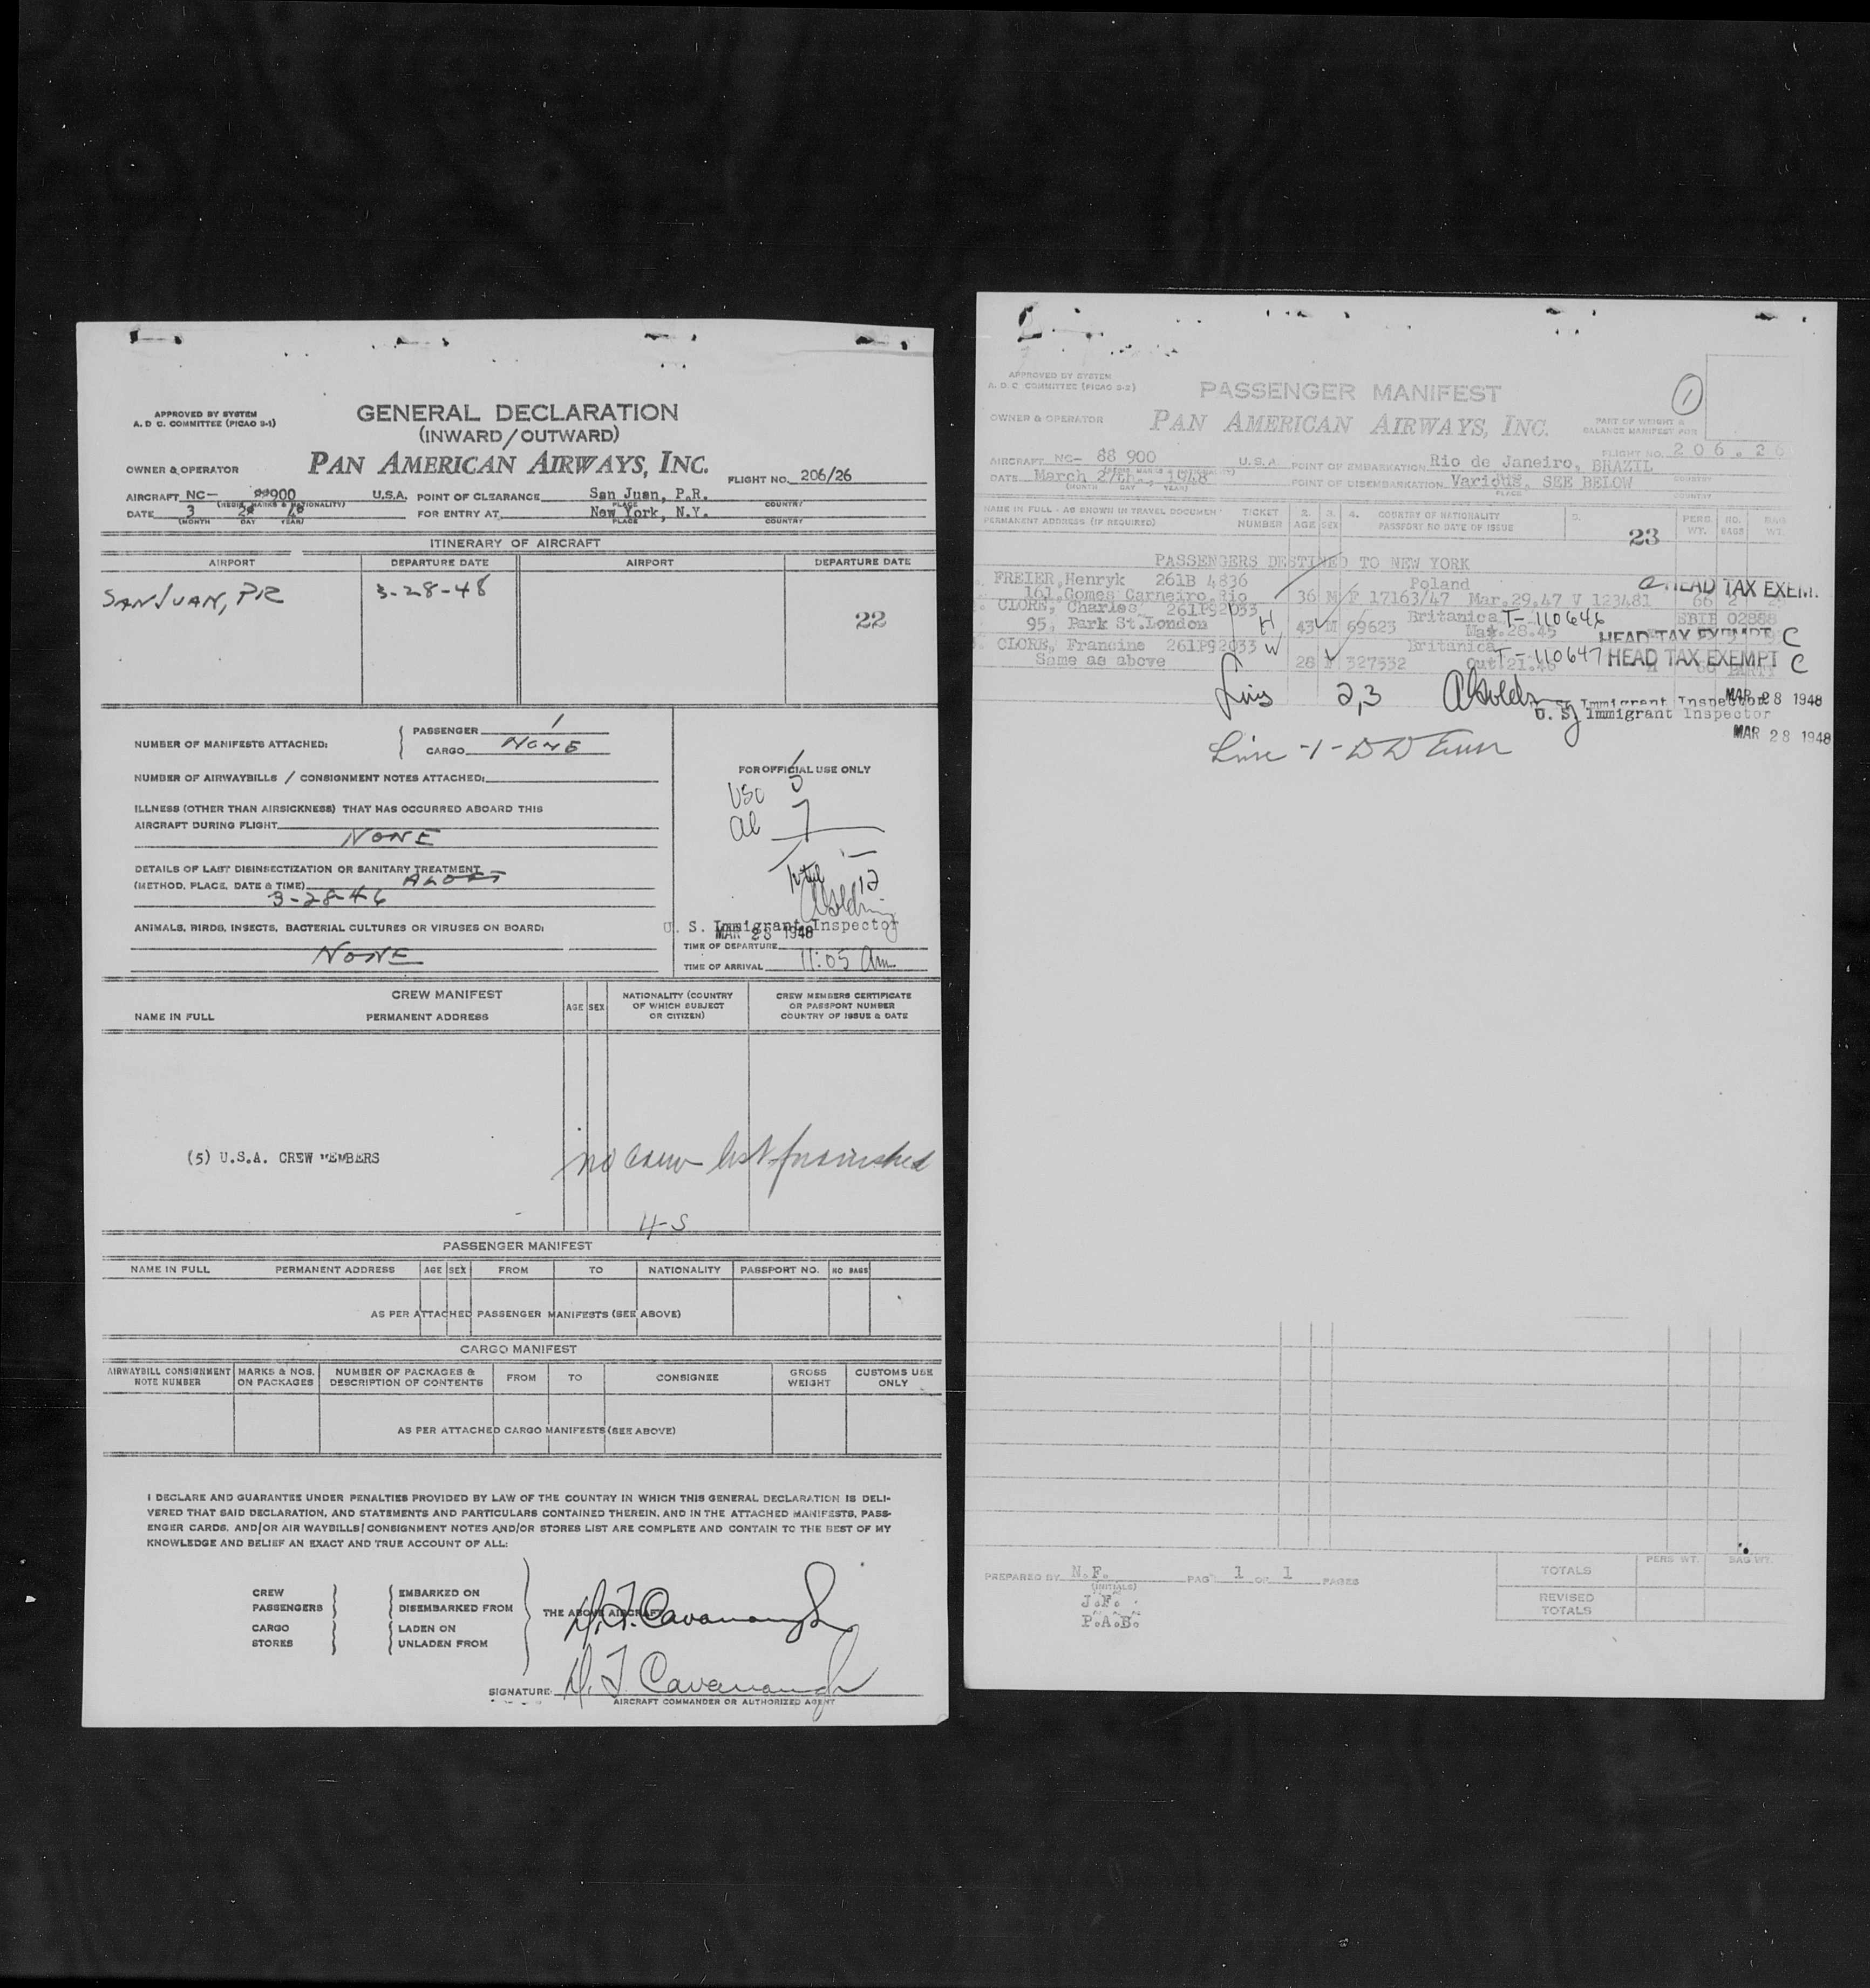 APPROVED BY SYSTEM
A. D C. COMMITTEE (PICAO 9-1)
GENERAL DECLARATION
(INWARD/OUTWARD)
OWNER & OPERATOR
PAN AMERICAN AIRWAYS, INC.
FLIGHT NO. 206/26
AIRCRAFT NC- 88900 U.S.A. POINT OF CLEARANCE San Juan, P.R.
(REGIS. MARKS & NATIONALITY) PLACE COUNTRY
DATE 3 28 48 FOR ENTRY AT New York, N.Y.
(MONTH DAY YEAR) PLACE COUNTRY
ITINERARY OF AIRCRAFT
AIRPORT DEPARTURE DATE AIRPORT DEPARTURE DATE
SAN JUAN, PR 3-28-48
22
NUMBER OF MANIFESTS ATTACHED: PASSENGER 1
CARGO NONE
NUMBER OF AIRWAYBILLS / CONSIGNMENT NOTES ATTACHED:
ILLNESS (OTHER THAN AIRSICKNESS) THAT HAS OCCURRED ABOARD THIS
AIRCRAFT DURING FLIGHT
NONE
DETAILS OF LAST DISINSECTIZATION OR SANITARY TREATMENT
(METHOD, PLACE, DATE & TIME) ALOFT
3-28-46
ANIMALS, BIRDS, INSECTS, BACTERIAL CULTURES OR VIRUSES ON BOARD:
NONE
FOR OFFICIAL USE ONLY
USC 5
al 7
Total 12
U. S. Immigrant Inspector
MAR 28 1948
TIME OF DEPARTURE
TIME OF ARRIVAL 11:05 am.
CREW MANIFEST
NAME IN FULL PERMANENT ADDRESS AGE SEX
NATIONALITY (COUNTRY
OF WHICH SUBJECT
OR CITIZEN)
CREW MEMBERS CERTIFICATE
OR PASSPORT NUMBER
COUNTRY OF ISSUE & DATE
(5) U.S.A. CREW MEMBERS
no crew list furnished
4-S
PASSENGER MANIFEST
NAME IN FULL PERMANENT ADDRESS AGE SEX FROM TO NATIONALITY PASSPORT NO. NO BAGS
AS PER ATTACHED PASSENGER MANIFESTS (SEE ABOVE)
CARGO MANIFEST
AIRWAYBILL CONSIGNMENT
NOTE NUMBER
MARKS & NOS.
ON PACKAGES
NUMBER OF PACKAGES &
DESCRIPTION OF CONTENTS
FROM TO CONSIGNEE
GROSS
WEIGHT
CUSTOMS USE
ONLY
AS PER ATTACHED CARGO MANIFESTS (SEE ABOVE)
I DECLARE AND GUARANTEE UNDER PENALTIES PROVIDED BY LAW OF THE COUNTRY IN WHICH THIS GENERAL DECLARATION IS DELI-
VERED THAT SAID DECLARATION, AND STATEMENTS AND PARTICULARS CONTAINED THEREIN, AND IN THE ATTACHED MANIFESTS, PASS-
ENGER CARDS, AND/OR AIR WAYBILLS/CONSIGNMENT NOTES AND/OR STORES LIST ARE COMPLETE AND CONTAIN TO THE BEST OF MY
KNOWLEDGE AND BELIEF AN EXACT AND TRUE ACCOUNT OF ALL:
CREW EMBARKED ON
PASSENGERS DISEMBARKED FROM THE ABOVE AIRCRAFT
CARGO LADEN ON
STORES UNLADEN FROM
Cavanaugh
SIGNATURE: Cavanaugh
AIRCRAFT COMMANDER OR AUTHORIZED AGENT
APPROVED BY SYSTEM
A. D. C COMMITTEE (PICAO 9-2)
PASSENGER MANIFEST
1
OWNER & OPERATOR
PAN AMERICAN AIRWAYS, INC.
PART OF WEIGHT &
BALANCE MANIFEST FOR
FLIGHT NO. 206.26
AIRCRAFT NC- 88 900 U.S.A. POINT OF EMBARKATION Rio de Janeiro, BRAZIL
COUNTRY
DATE March 27th., 1948 POINT OF DISEMBARKATION Various, SEE BELOW
(MONTH DAY YEAR) PLACE COUNTRY
NAME IN FULL - AS SHOWN IN TRAVEL DOCUMENT
PERMANENT ADDRESS (IF REQUIRED)
TICKET
NUMBER
2.
AGE
3.
SEX
4. COUNTRY OF NATIONALITY
PASSPORT NO DATE OF ISSUE
5.
23
PERS
WT.
NO.
BAGS
BAG
WT.
PASSENGERS DESTINED TO NEW YORK
FREIER, Henryk 261B 4836 Poland HEAD TAX EXEM.
161, Gomes Carneiro, Rio 36 M P 17163/47 Mar.29.47 V 123481 66 2
CLORE, Charles 261P92033 Britanica T-110646 EBIE 02888
95, Park St. London H 43 M 69623 Mar.28.45 HEAD TAX EXEMPT C
CLORE, Francine 261P92033 W Britanica T-110647 HEAD TAX EXEMPT C
Same as above 28 F 327532 Out 21.46
2,3
U. S. Immigrant Inspector MAR 28 1948
U. S. Immigrant Inspector
MAR 28 1948
Line -1-
PREPARED BY N.F. PAGE 1 OF 1 PAGES
(INITIALS)
J.F.
P.A.B.
PERS WT. BAG WT.
TOTALS
REVISED
TOTALS